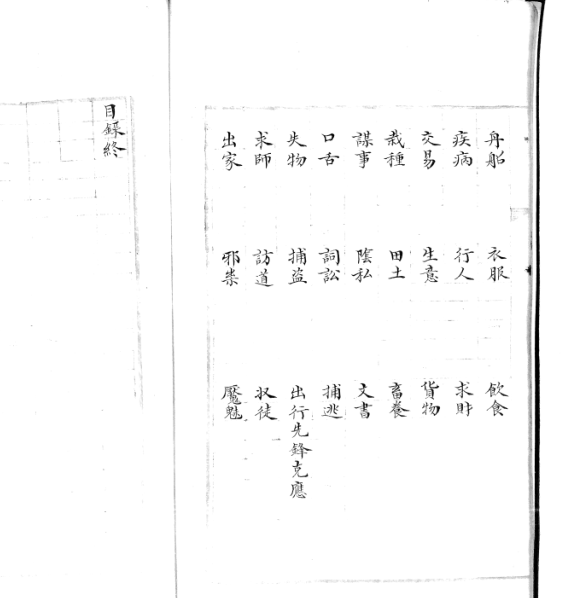 舟船 衣服 飲食
疾病 行人 求財
交易 生意 貨物
栽種 田土 畜養
謀事 陰私 文書
口舌 詞訟 捕逃
失物 捕盜 出行先鋒克應
求師 訪道 収徒
出家 邪祟 魘魅
目録終